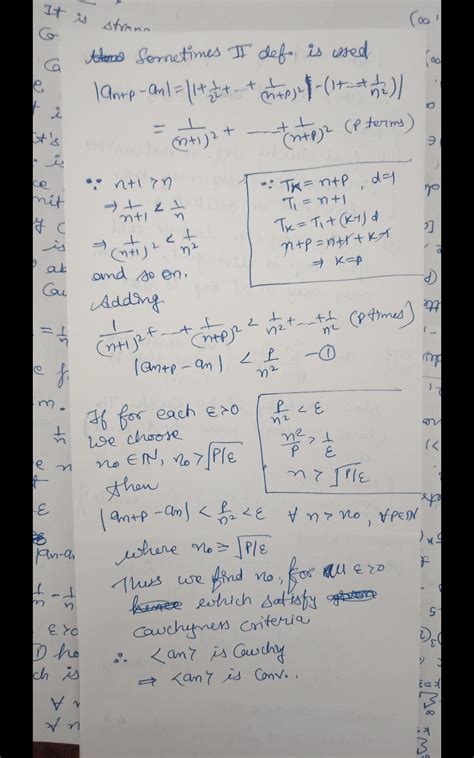 It is
Sometimes II def. is used
|an+p - an| = |(1+1/2²+...+1/(n+p)²) - (1+...+1/n²)|
= 1/(n+1)² + ......+ 1/(n+p)² (p terms)
∵ n+1 > n
⇒ 1/(n+1) < 1/n
⇒ 1/(n+1)² < 1/n²
and so on.
∵ Tk = n+p, d=1
T1 = n+1
Tk = T1+(k-1)d
n+p = n+1+k-1
⇒ k=p
Adding
1/(n+1)² +...+ 1/(n+p)² < 1/n² +...+ 1/n² (p times)
|an+p - an| < p/n² —①
If for each ε>0
we choose
n0 ∈ IN, n0 > √P/ε
then
p/n² < ε
n²/p > 1/ε
n > √P/ε
|an+p - an| < p/n² < ε ∀ n > n0, ∀ p∈N
where n0 ≥ √P/ε
Thus we find n0, for all ε>0
which satisfy
cauchyness criteria
∴ <an> is Cauchy
⇒ <an> is Conv..